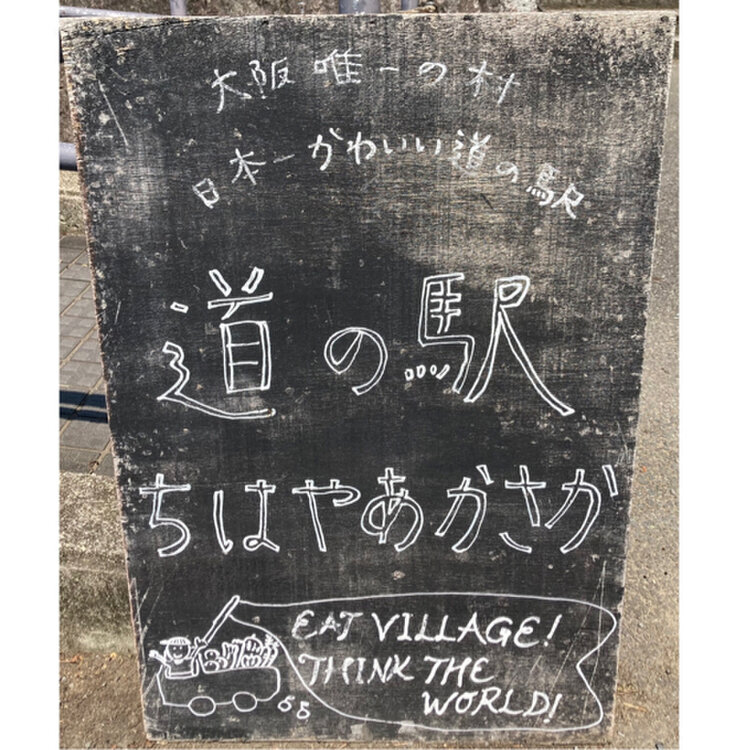 大阪唯一の村
日本一かわいい道の駅
道の駅
ちはやあかさか
EAT VILLAGE!
THINK THE
WORLD!